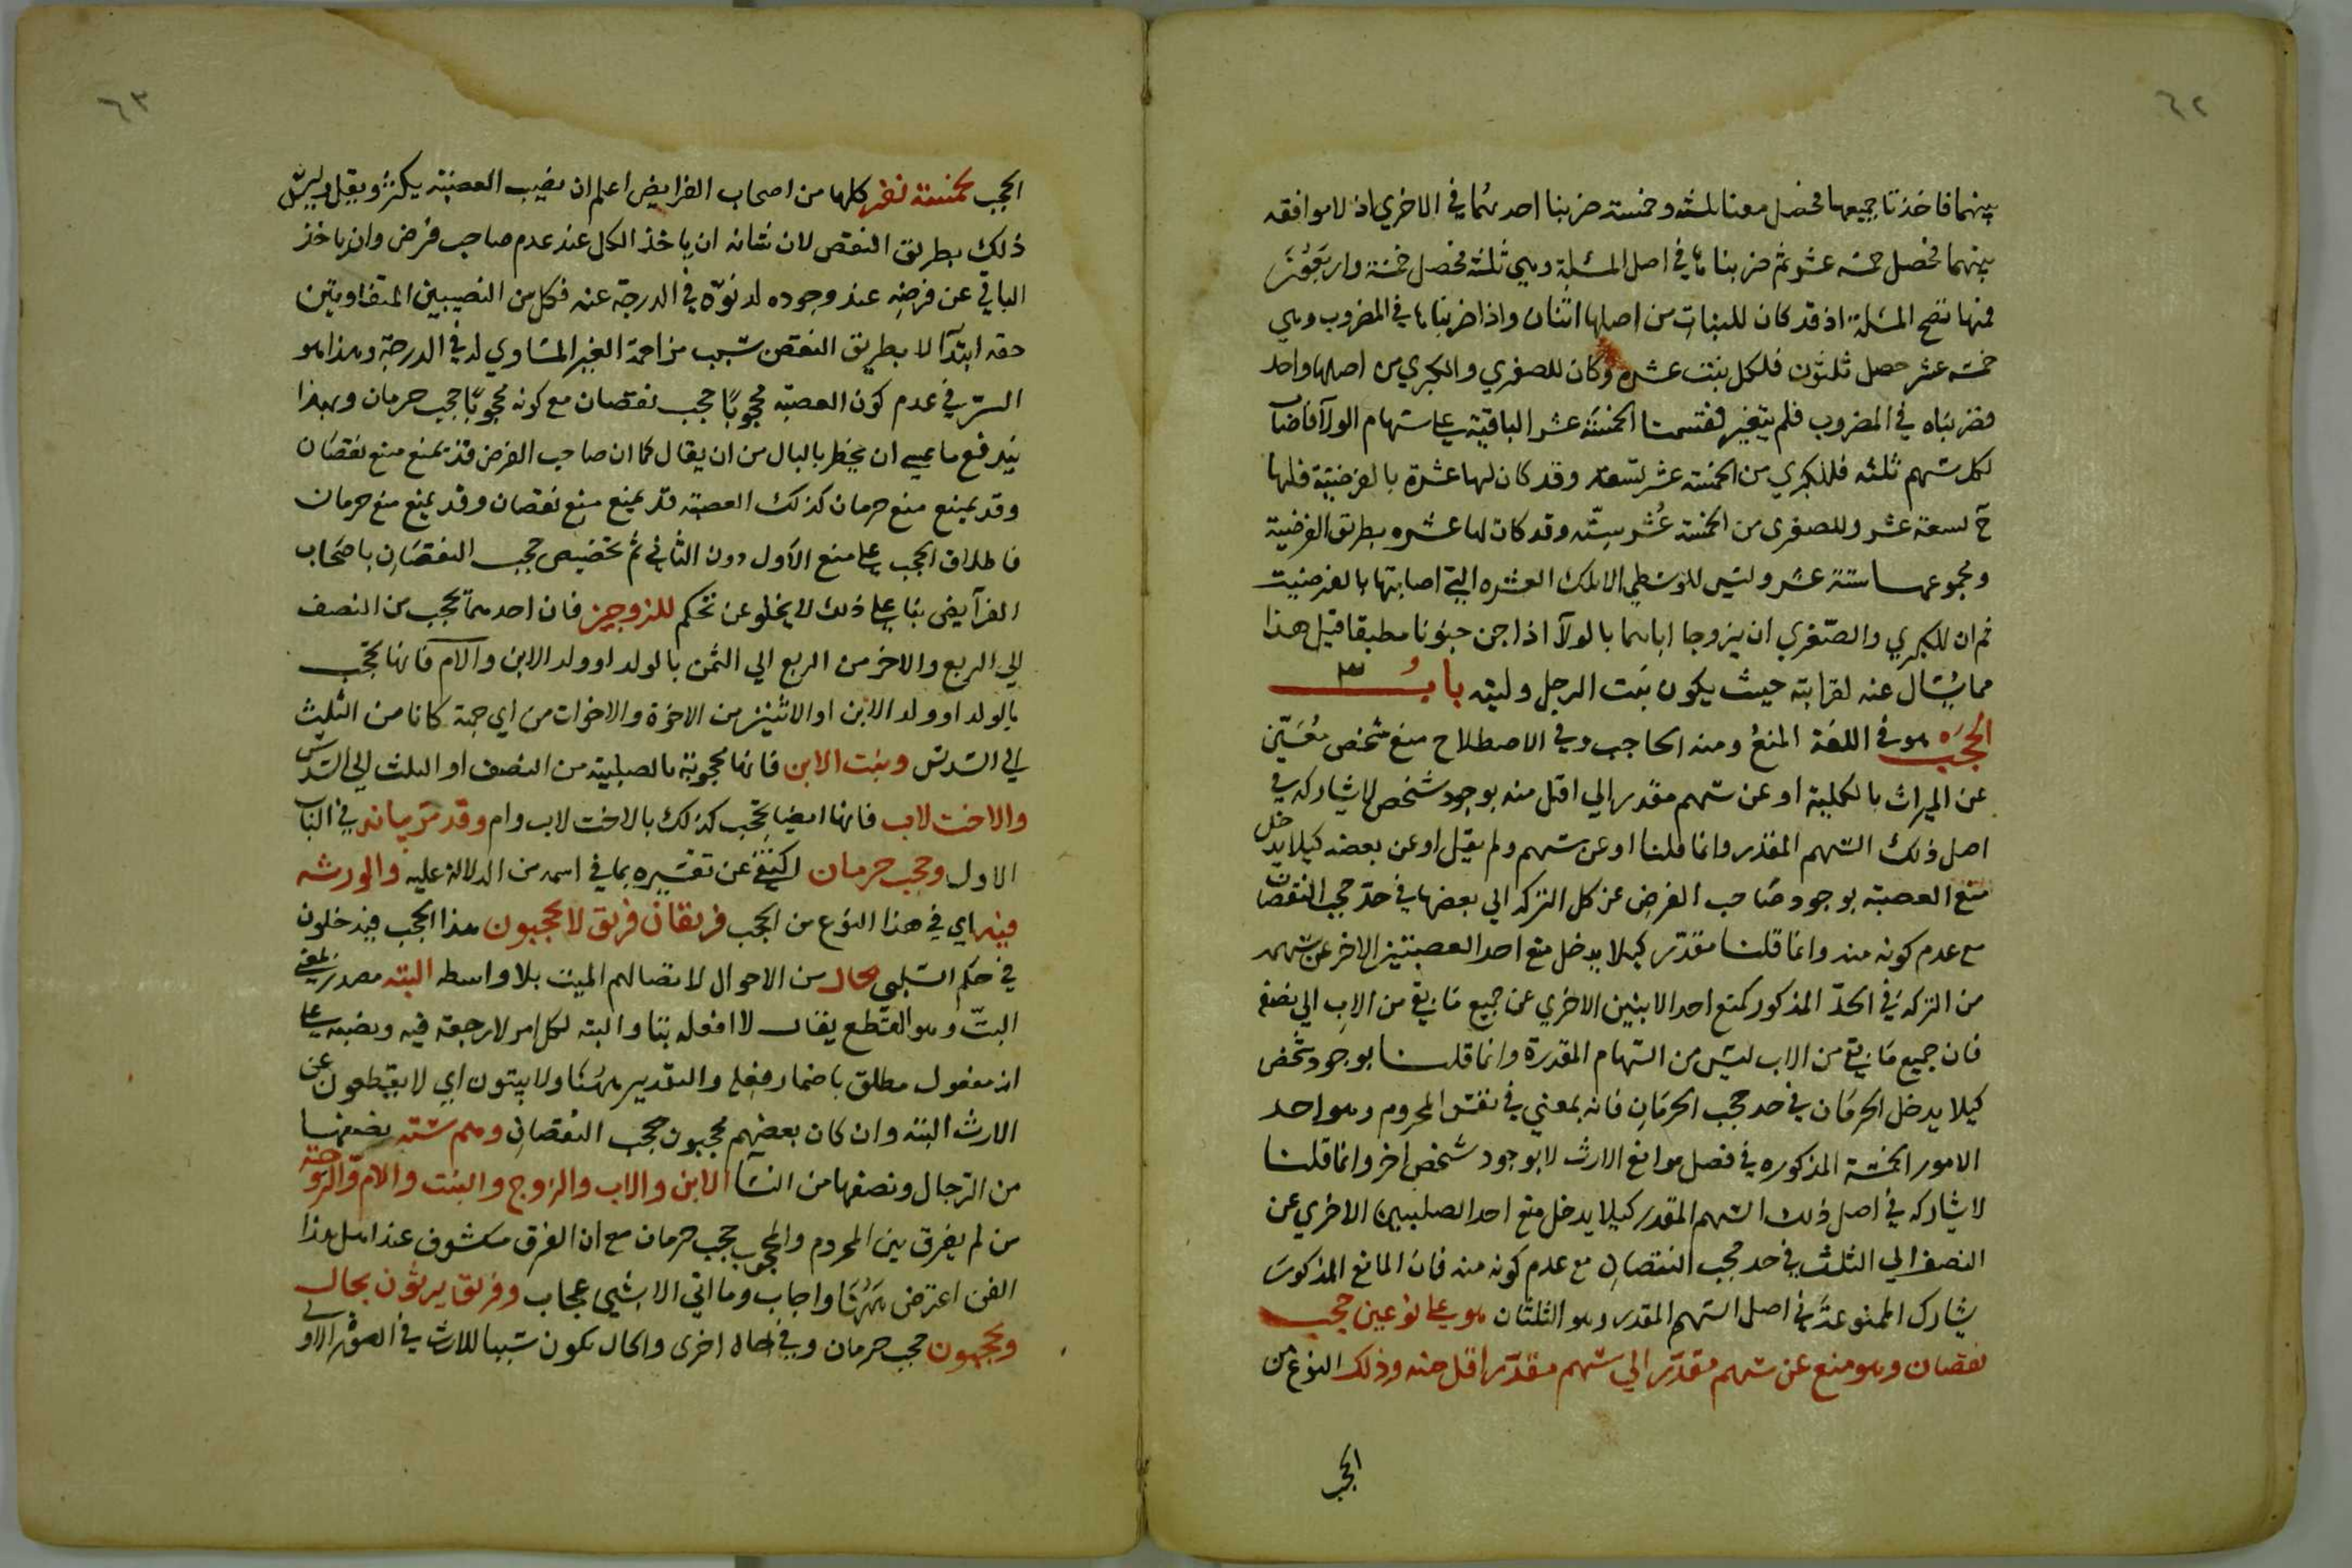 ٦٢
بينهما فاخذنا جميعها فحصل معنا ثلثه وخمسة ضربنا احدهما في الاخري اذ لا موافقه
بينهما فحصل خمسه عشر ثم ضربناها في اصل المسئلة وهي ثلثة فحصل خمسة واربعون
فمنها تصح المسئلة اذ قد كان للبنات من اصلها اثنان واذا ضربناها في المضروب وهي
خمسه عشر حصل ثلثون فلكل بنت عشرة وكان للصغري والكبري من اصلها واحد
فضربناه في المضروب فلم يتغير فقسمنا الخمسة عشر الباقية علي سهام الولآ فاصاب
لكل سهم ثلثه فللكبري من الخمسة عشر تسعة وقد كان لها عشرة بالفرضية فلها
ح تسعة عشر وللصغري من الخمسة عشر ستّه وقد كان لها عشره بطريق الفرضية
ومجموعها ستة عشر وليس للوسطي الا تلك العشره التي اصابتها بالفرضيت
ثم ان للكبري والصّغري ان يزوجا اباهما بالولآ اذا جن جنونا مطبقا قيل هذا
مما يُسْاَل عنه لقرابته حيث يكون بنت الرجل وليته بابُ ٣
الحجب هو في اللغة المنعُ ومنه الحاجب وفي الاصطلاح منع شخص مُعَيّن
عن الميراث بالكلية او عن سهم مقدر الي اقل منه بوجود شخص لا يشاركه في
اصل ذلك السّهم المقدر وانما قلنا او عن سهم ولم يقل او عن بعضه كيلا يدخل
منع العصبة بوجود صاحب الفرض عن كل التركه الي بعضها في حدّ حجب النقصان
مع عدم كونه منه وانما قلنا مقدّر كيلا يدخل منع احد العصبتين الاخر عن سهمه
من التركه في الحدّ المذكور كمنع احد الابنين الاخري عن جميع ما بقي من الاب الي نصفه
فان جميع ما بقي من الاب ليس من السّهام المقدرة وانما قلنا بوجود شخص
كيلا يدخل الحرمان في حد حجب الحرمان فانه بمعني في نفس المحروم وهو احد
الامور الخمسة المذكوره في فصل موانع الارث لا بوجود شخص اخر وانما قلنا
لا يشاركه في اصل ذلك السهم المقدر كيلا يدخل منع احد الصلبيين الاخري عن
النصف الي الثلث في حد حجب النقصان مع عدم كونه منه فان المانع المذكور
يشارك الممنوع عنه في اصل السّهم المقدر وهو الثلثان هو علي نوعين حجب
نقصان وهو منع عن سهم مقدّر الي سهم مقدّر اقل منه وذلك النوع من
الحجب
٦٣
الحجب لخمسة نفر كلها من اصحاب الفرايض اعلم ان نصيب العصبة يكثر ويقل وليس
ذلك بطريق النقص لان شانه ان ياخذ الكل عند عدم صاحب فرض وان ياخذ
الباقي عن فرضه عند وجوده لدنوّه في الدرجة عنه فكل من النصيبين المتفاوتين
حقه ابتدآ لا بطريق النقص بسبب مزاحمة الغير المساوي له في الدرجة وهذا هو
السرّ في عدم كون العصبة محجوبًا حجب نقصان مع كونه محجوبًا حجب حرمان وبهذا
يندفع ما عسي ان يخطر بالبال من ان يقال كما ان صاحب الفرض قد يمنع منع نقصان
وقد يمنع منع حرمان كذلك العصبة قد يمنع منع نقصان وقد يمنع منع حرمان
فاطلاق الحجب علي منع الاول دون الثاني ثم تخصيص حجب النقصان باصحاب
الفرآيض بنا علي ذلك لا يخلو عن تحكم للزوجين فان احدهما يحجب من النصف
الي الربع والاخر من الربع الي الثمن بالولد او ولد الابن والام فانها تحجب
بالولد او ولد الابن او الاثنين من الاخوة والاخوات من اي جهة كانا من الثلث
الي السّدس وبنت الابن فانها محجوبة بالصلبية من النصف او الثلث الي السّدس
والاخت لاب فانها ايضا تحجب كذلك بالاخت لاب وام وقد مرّ بيانه في الباب
الاول وحجب حرمان اكتفي عن تفسيره بما في اسمه من الدلالة عليه والورثه
فيه اي في هذا النوع من الحجب فريقان فريق لا يحجبون هذا الحجب فيدخلون
في حكم السّلبي بحال من الاحوال لاتصالهم الميت بلا واسطه البته مصدر بمعني
البتّ وهو القطع يقال لا افعله بتا والبته لكل امر لا رجعة فيه ونصبه علي
انه مفعول مطلق باضمار فعله والتقدير ههنا ولا يبتون اي لا يقطعون عن
الارث البته وان كان بعضهم محجبون حجب النقصان وهم ستة نصفها
من الرّجال ونصفها من النسآ الابن والاب والزوج والبنت والام والزوجة
من لم يفرق بين المحروم والمحجوب بحجب حرمان مع ان الفرق مكشوف عند اهل هذا
الفن اعترض ههنا واجاب وما اتي الا بشيي عجاب وفريق يرثون بحال
ويحجبون حجب حرمان وفي حاله اخري والحال يكون سببا للارث في الصورة الاولي